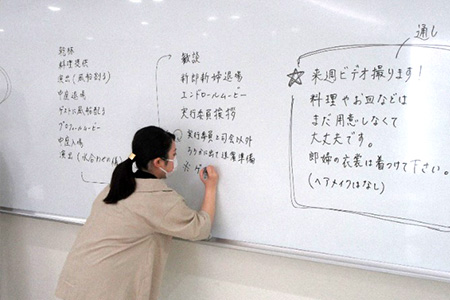 乾杯
料理提供
演出(風船割り)
中座退場
ゲストに風船配り
プロフィールムービー
中座入場
歓談
新郎新婦退場
エンドロールムービー
実行委員挨拶
実行委員と司会以外
ろうかに出て送賓準備
※
通し
☆来週ビデオ撮ります!
料理やお皿などは
まだ用意しなくて
大丈夫です。
郎婦の衣裳は着つけて下さい。
(ヘアメイクはなし)